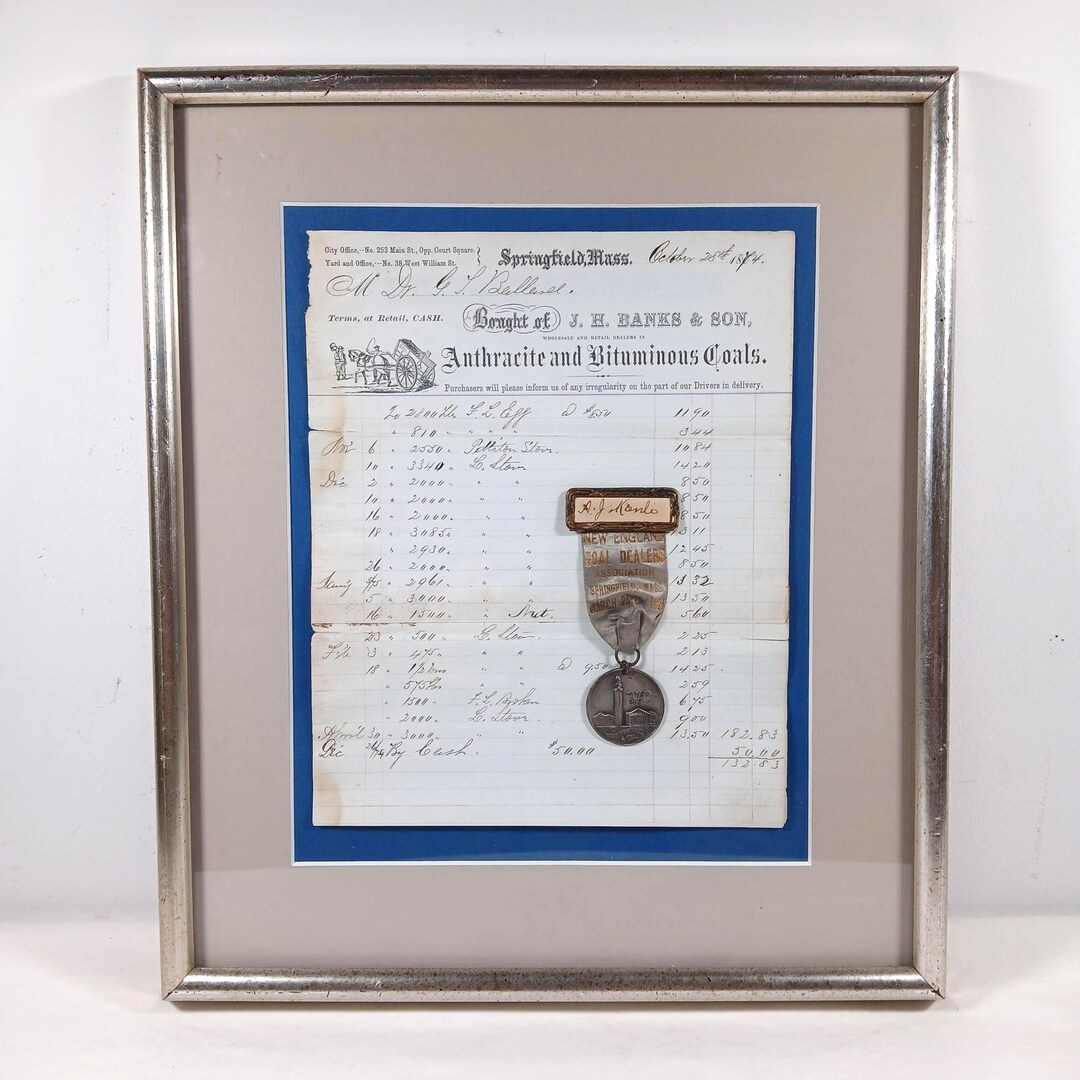 City Office,--No. 253 Main St., Opp. Court Square.
Yard and Office,--No. 38 West William St.
Springfield, Mass. October 28th 1874.
M Dr. G. S.
Terms, at Retail, CASH.
Bought of J. H. BANKS & SON,
WHOLESALE AND RETAIL DEALERS IN
Anthracite and Bituminous Coals.
Purchasers will please inform us of any irregularity on the part of our Drivers in delivery.
To 2800 Lbs Egg @ $8.50 11 90
" 810 " " " " 3 44
Nov 6 " 2550 " Stove. 10 84
10 " 3340 " L. Stove 14 20
Dec 2 " 2000 " " " 8 50
10 " 2000 " " " 8 50
16 " 2000 " " " 8 50
18 " 3085 " " " 13 11
" 2930 " " " 12 45
26 " 2000 " " " 8 50
" 2961 " " " 13 32
5 " 3000 " " " 13 50
16 " 1500 " " Nut. 5 60
23 " 500 " L. Stove. 2 25
Feb 3 " 475 " " " 2 13
18 " 1/2 " " @ 9.50 14 25
" 575 Lbs " " 2 59
" 1500 " 6 75
" 2000 " L. Stove. 9 00
April 30 " 3000 " " " 13,50 182.83
Dec By Cash. $50.00 50.00
132.83
A. J.
NEW ENGLAND
COAL DEALERS
ASSOCIATION
SPRINGFIELD, MASS.
MARCH